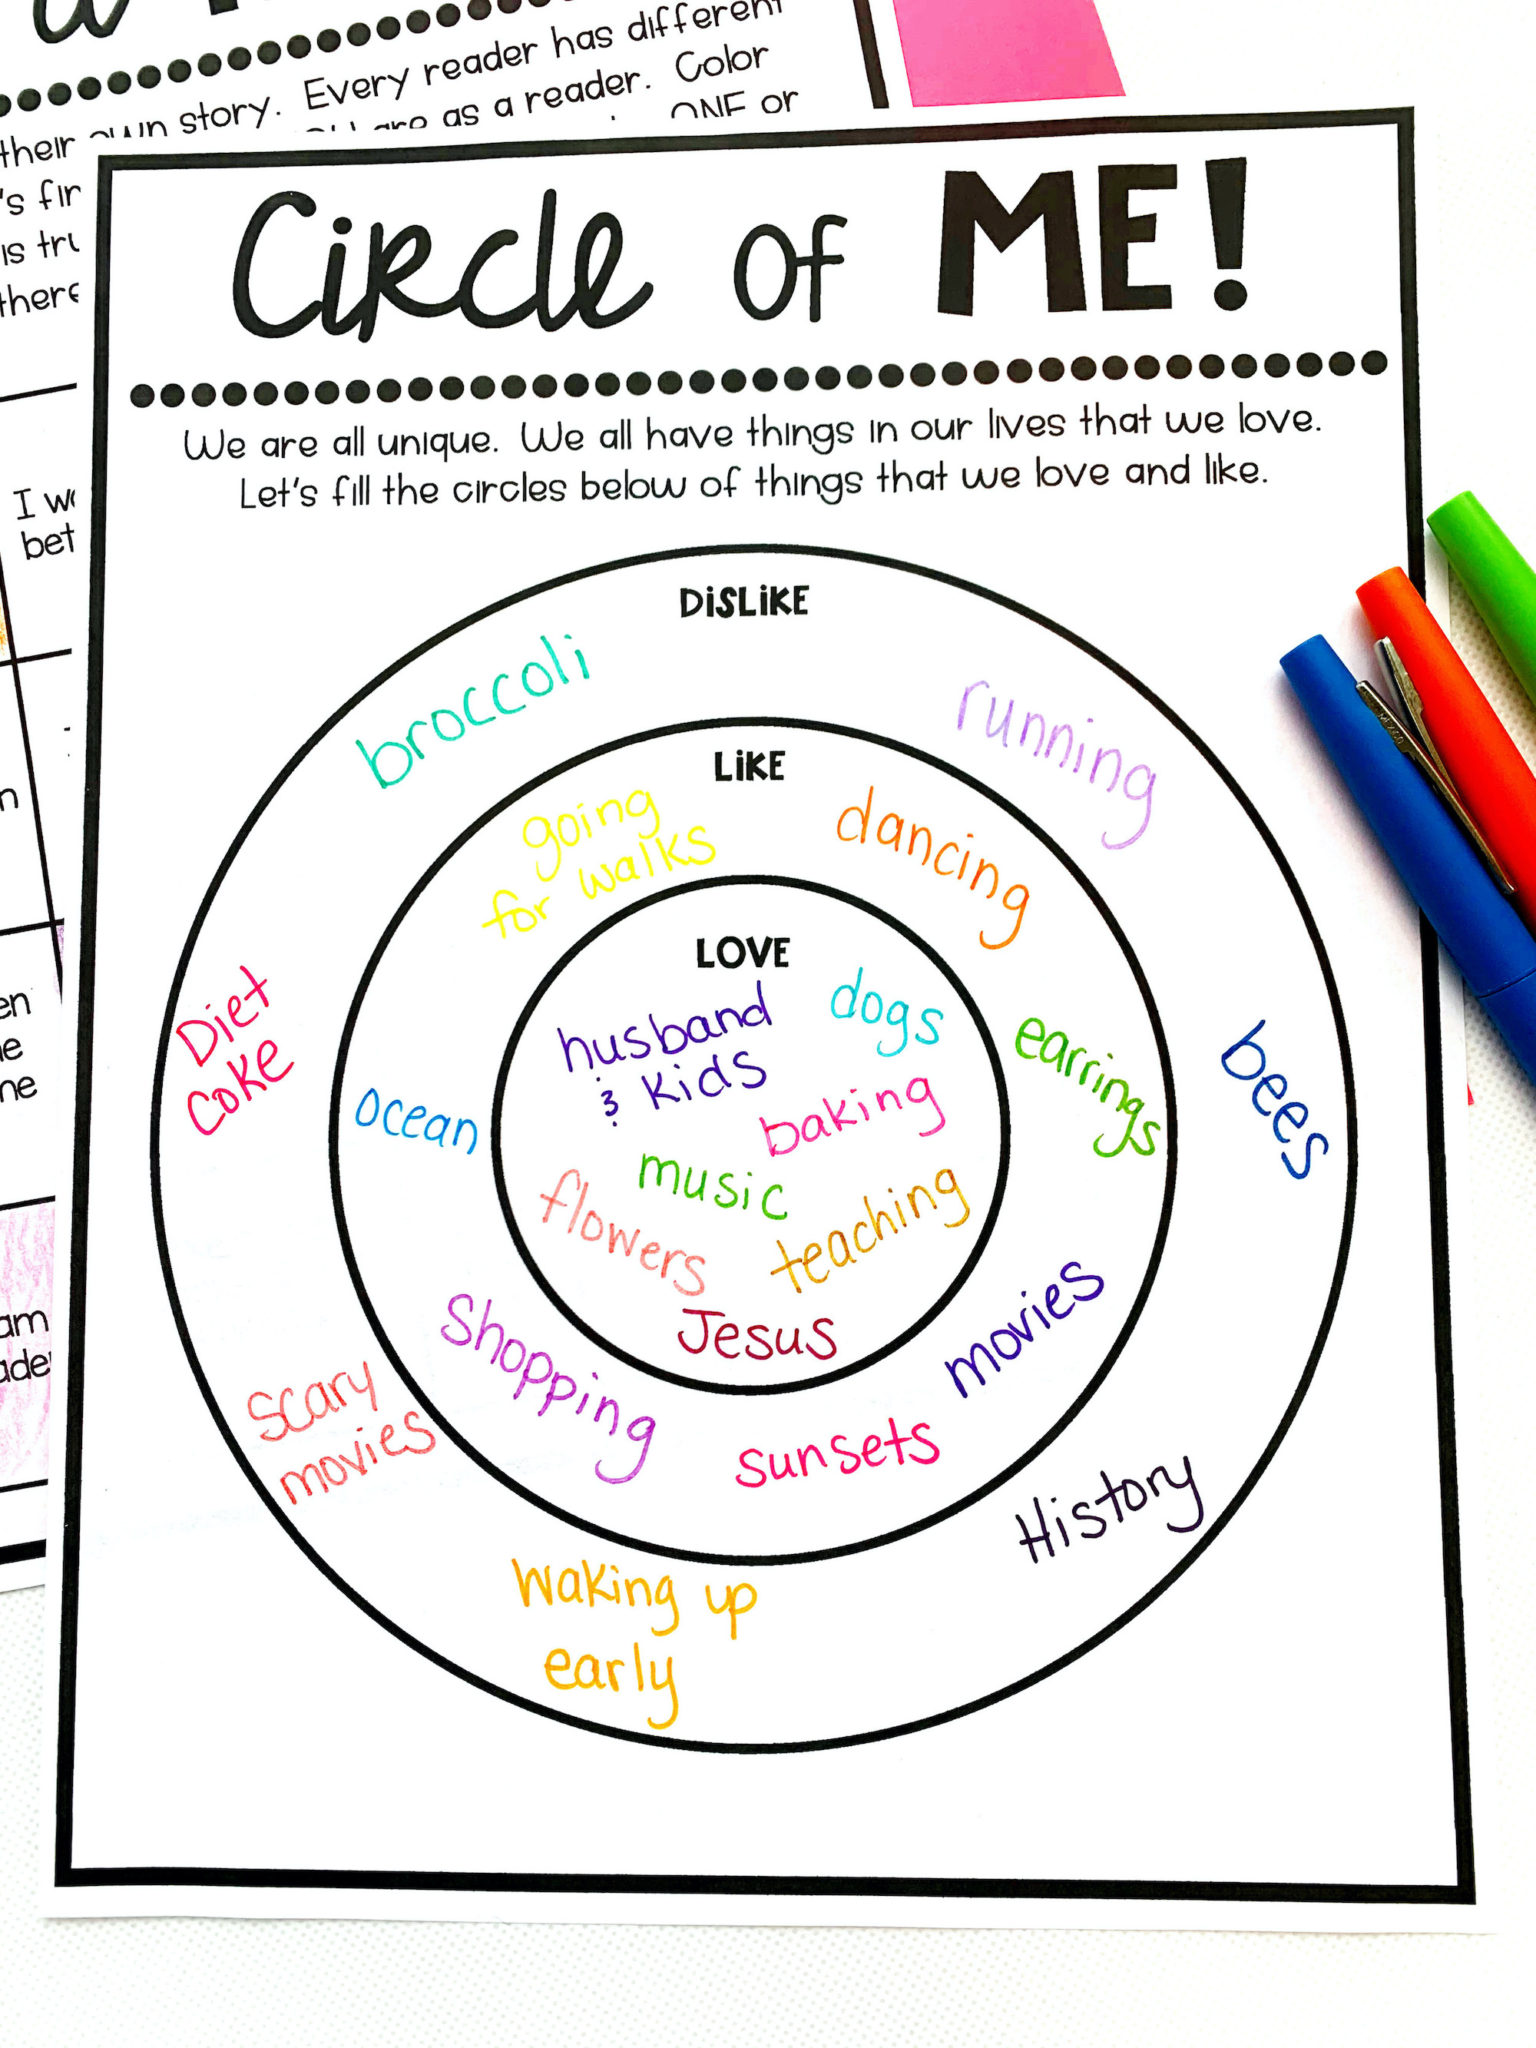 their own story. Every reader has different
as a reader. Color
ONE or
's fir
is tru
there
I w
bet
n
en
e
ne
am
ade
Circle of ME!
We are all unique. We all have things in our lives that we love.
Let's fill the circles below of things that we love and like.
DISLIKE
broccoli
running
Diet
Coke
bees
scary
movies
History
Waking up
early
LIKE
going
for walks
dancing
ocean
earrings
shopping
movies
sunsets
LOVE
husband
& kids
dogs
baking
music
flowers
teaching
Jesus
MEXICO